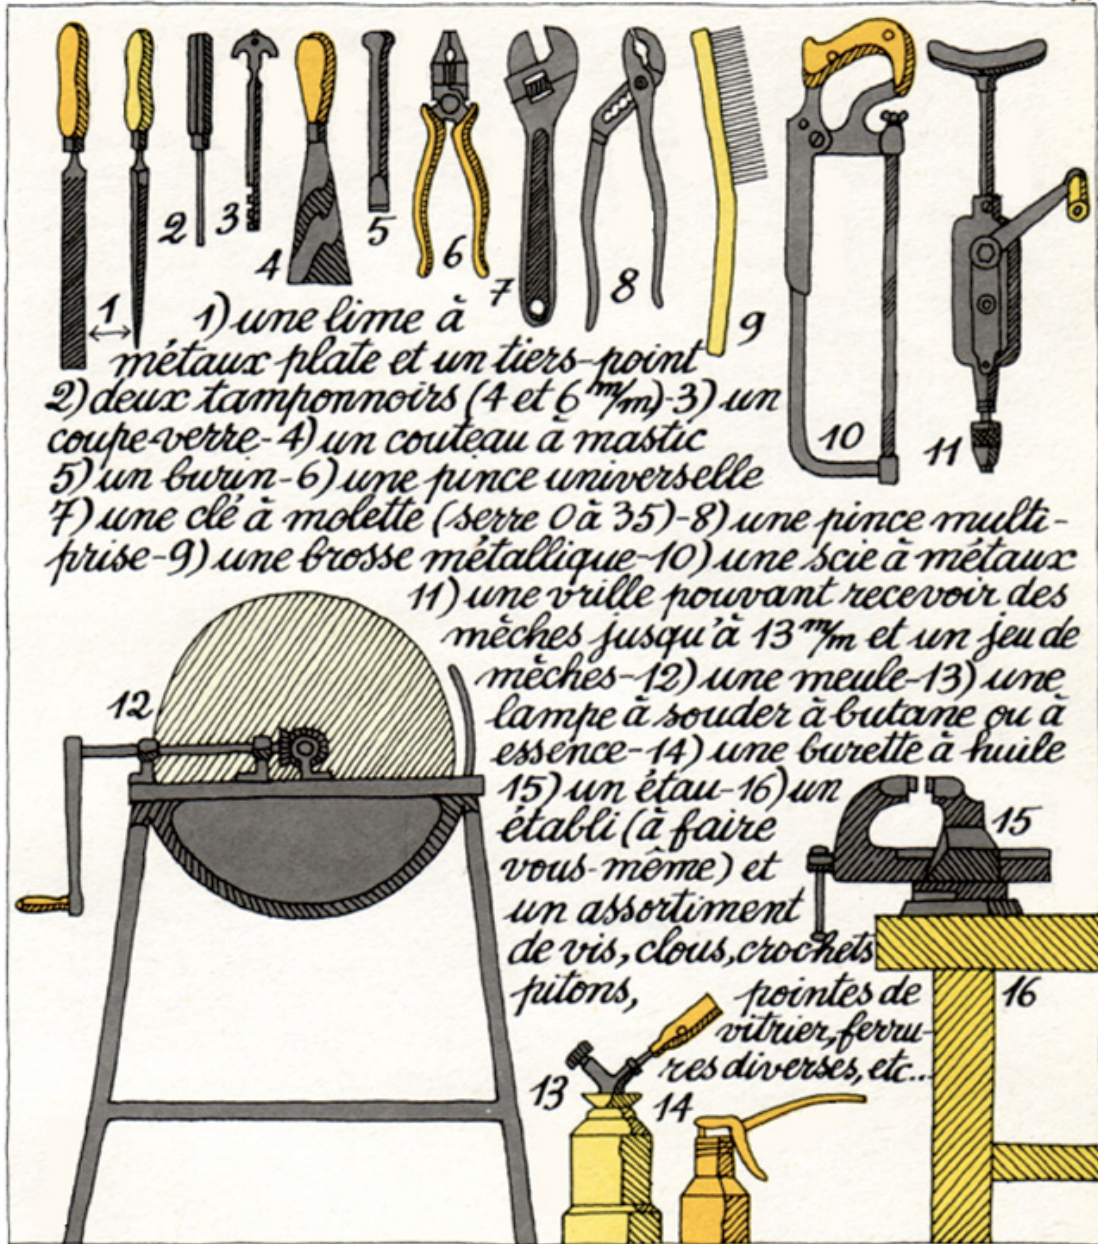 1
2
3
4
5
6
7
8
9
10
11
1) une lime à
métaux plate et un tiers-point
2) deux tamponnoirs (4 et 6 m/m)-3) un
coupe-verre-4) un couteau à mastic
5) un burin-6) une pince universelle
7) une clé à molette (serre 0 à 35)-8) une pince multi-
prise-9) une brosse métallique-10) une scie à métaux
11) une vrille pouvant recevoir des
mèches jusqu'à 13 m/m et un jeu de
mèches-12) une meule-13) une
lampe à souder à butane ou à
essence-14) une burette à huile
15) un étau-16) un
établi (à faire
vous-même) et
un assortiment
de vis, clous, crochets
pitons, pointes de
vitrier, ferru-
res diverses, etc...
12
15
16
13
14